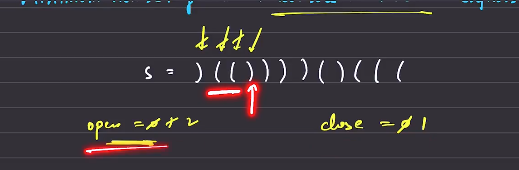 s = ) ( ( ) ) ) ) ( ) ( ( (
open = 0 1 2 close = 0 1